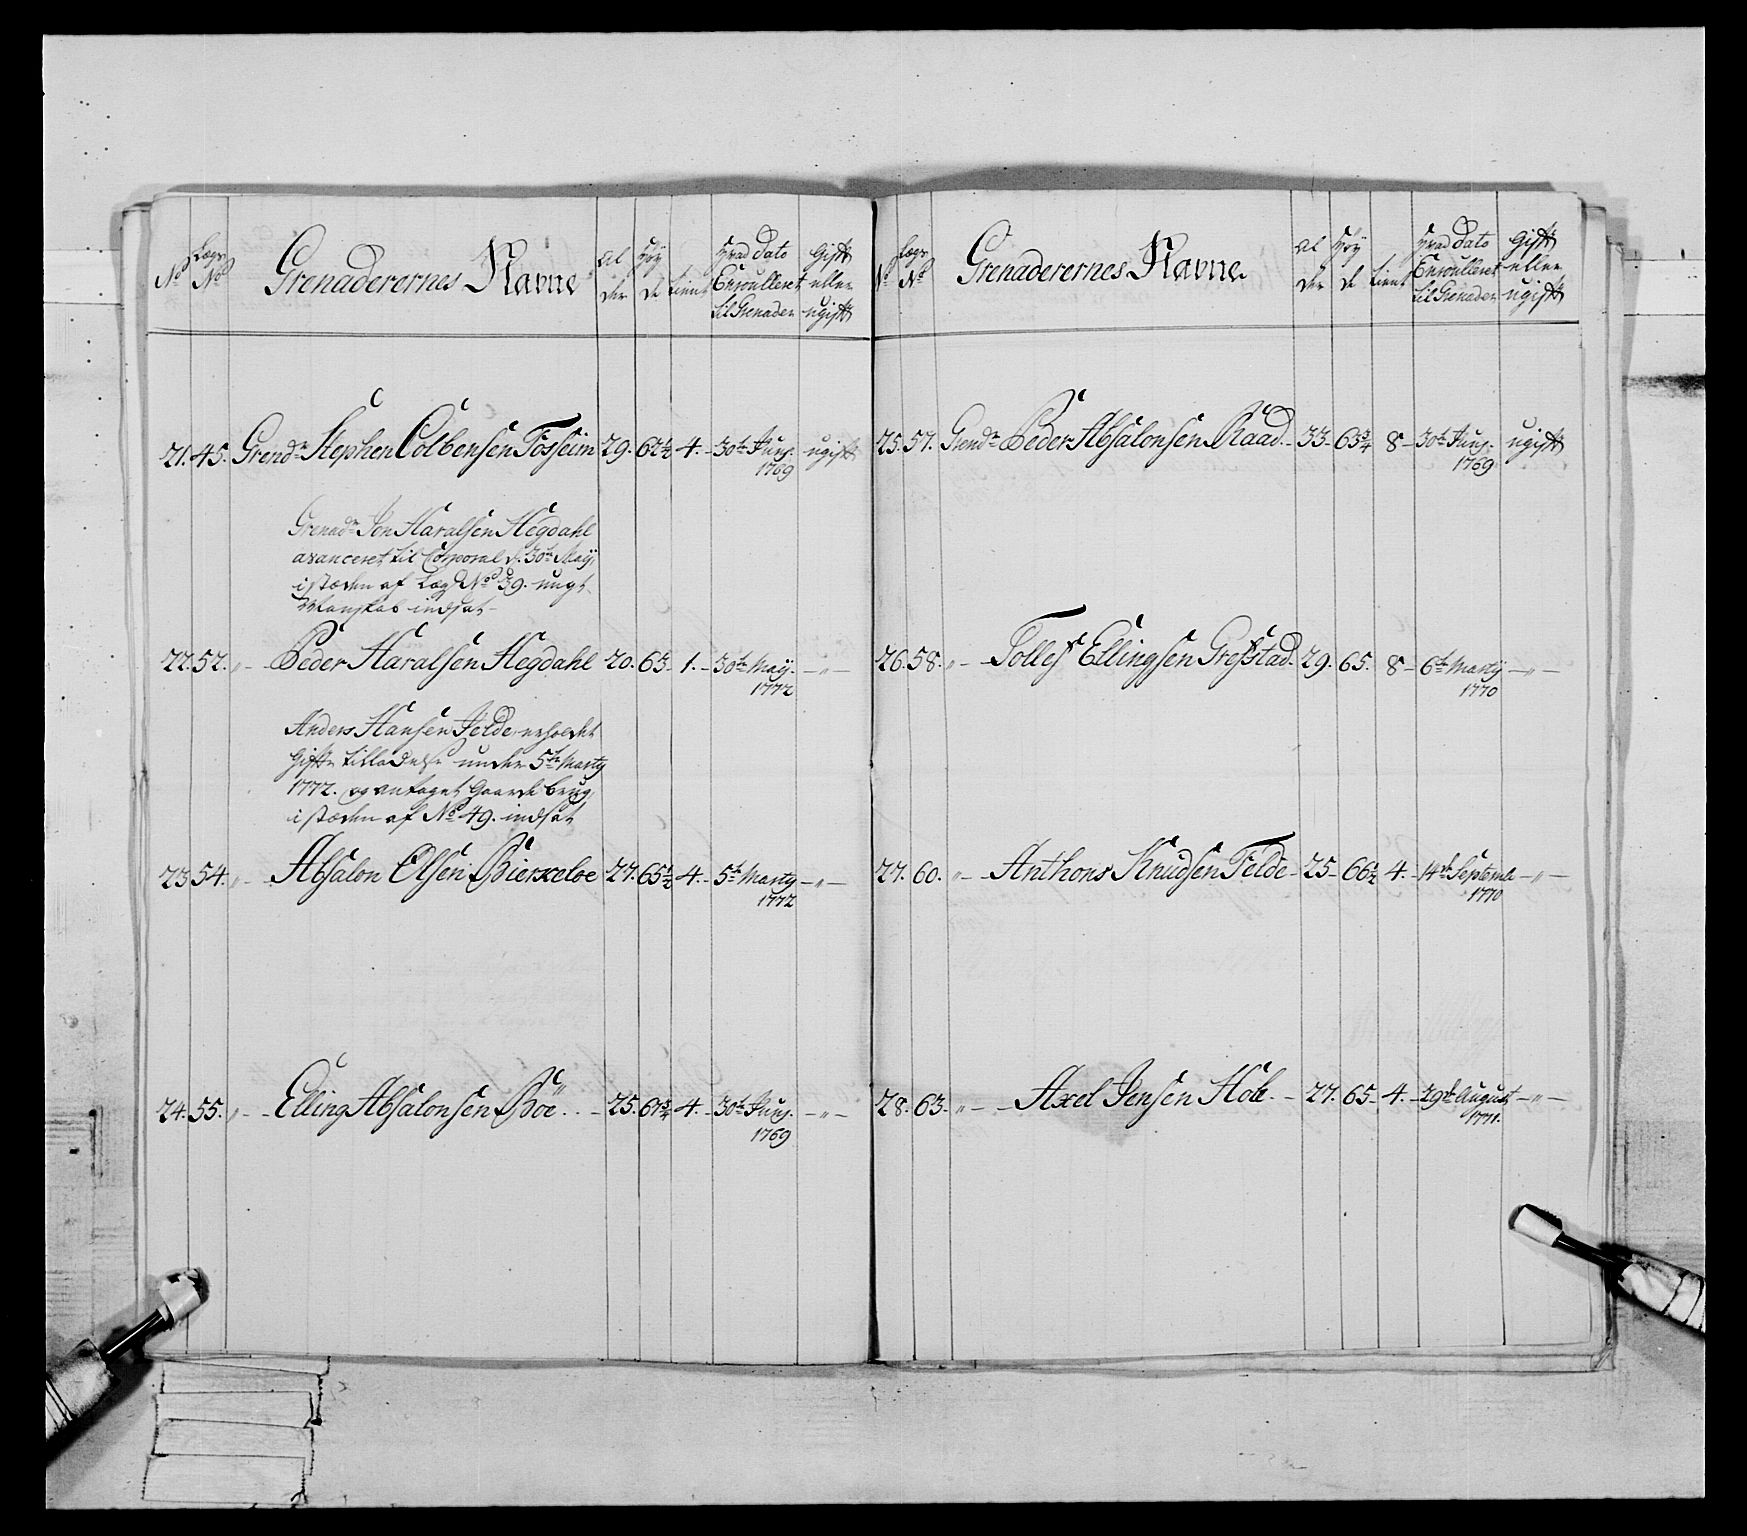 No Lægs No Grenaderernes Navne Al der Høy de tient Hvad Dato Enroulleret til Grenader Gift eller ugift
21. 45. Grendr Stephen Colbensen Tosseim 29. 62½ 4. 30te Junj. 1769 ugift
Grenadr Jon Haralsen Hegdahl
avanceret til Corporal d. 30te Maij,
i stæden af Læg No 39. ungt
Mandskab indsat
22. 52. „ Peder Haralsen Hegdahl 20. 63. 1. 30te Maij. 1772 „
Anders Hansen Jelde erholdet
Gifte tilladelse under 5te Marty
1772. og antaget Gaarde brug,
i stæden af No 49. indsat
23. 54. „ Absalon Olsen Bierxeloe 27. 65½ 4. 5te Marty 1772 „
24. 55. „ Elling Absalonsen Böe 25. 67¾ 4. 30te Junj. 1769 „
No Lægs No Grenaderernes Navne Al der Høy de tient Hvad Dato Enroulleret til Grenader Gift eller ugift
25. 57. Grendr Peder Absalonsen Raad 33 63¾ 8 30te Junj. 1769 ugift
26. 58. „ Tollef Ellingsen Grefstad 29. 65. 8 6te Marty 1770 „
27. 60. „ Anthons Knudsen Felde 25 66½ 4. 14de Septemb 1770 „
28. 63. „ Axel Jensen Hole 27. 65 4. 29de August 1771. „